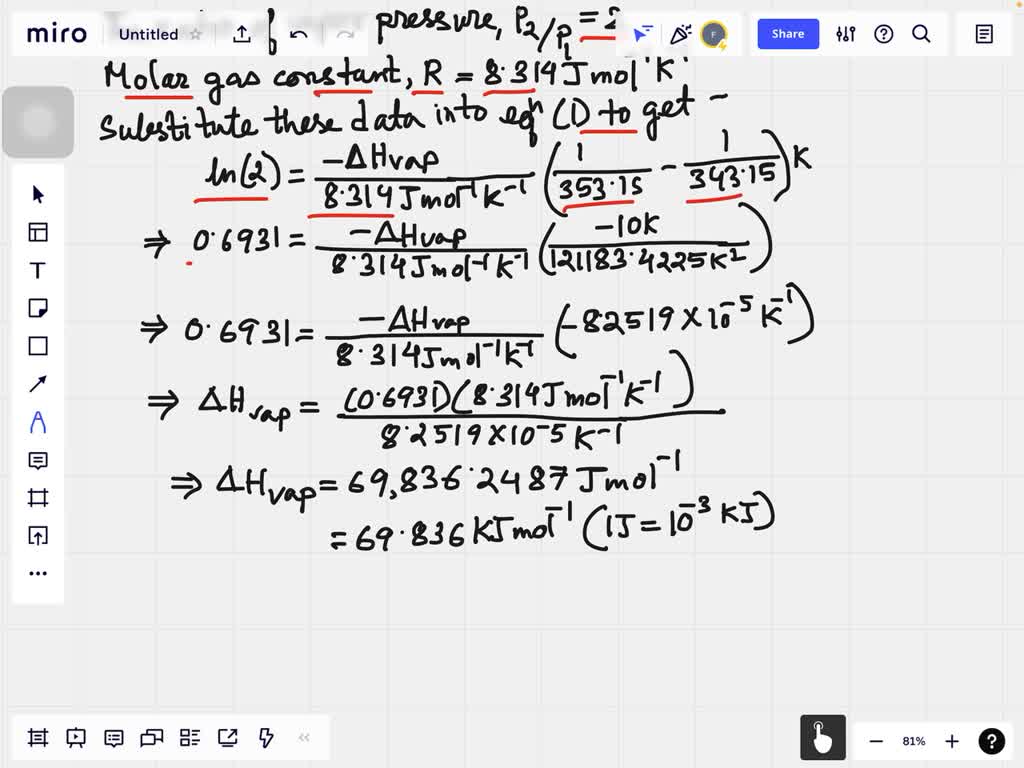 miro Untitled Share
pressure, P2/P1 = 2
Molar gas constant, R = 8.314 J mol⁻¹ K⁻¹
Substitute these data into eqⁿ (1) to get -
ln(2) = -ΔHvap / 8.314 J mol⁻¹ K⁻¹ (1/353.15 - 1/343.15) K
⇒ 0.6931 = -ΔHvap / 8.314 J mol⁻¹ K⁻¹ (-10K / 121183.4225 K²)
⇒ 0.6931 = -ΔHvap / 8.314 J mol⁻¹ K⁻¹ (-82519 × 10⁻⁵ K⁻¹)
⇒ ΔHvap = (0.6931) (8.314 J mol⁻¹ K⁻¹) / 8.2519 × 10⁻⁵ K⁻¹
⇒ ΔHvap = 69,836.2487 J mol⁻¹
= 69.836 KJ mol⁻¹ (1J = 10⁻³ KJ)
81%